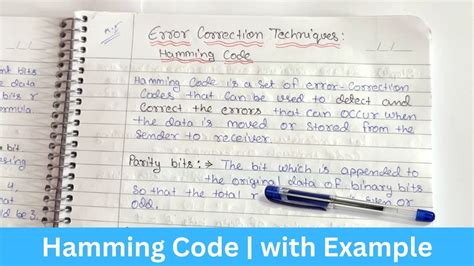 Error Correction Techniques:
Hamming Code
Hamming Code is a set of error-correction
Codes that can be used to detect and
Correct the errors that can occur when
the data is moved or stored from the
sender to receiver.
Parity bits:→ The bit which is appended to
the original data of binary bits
So that the total is even or
odd.
nt bits
data
bits r
ormula
bit
esting
4,
uld be 3,
Hamming Code | with Example